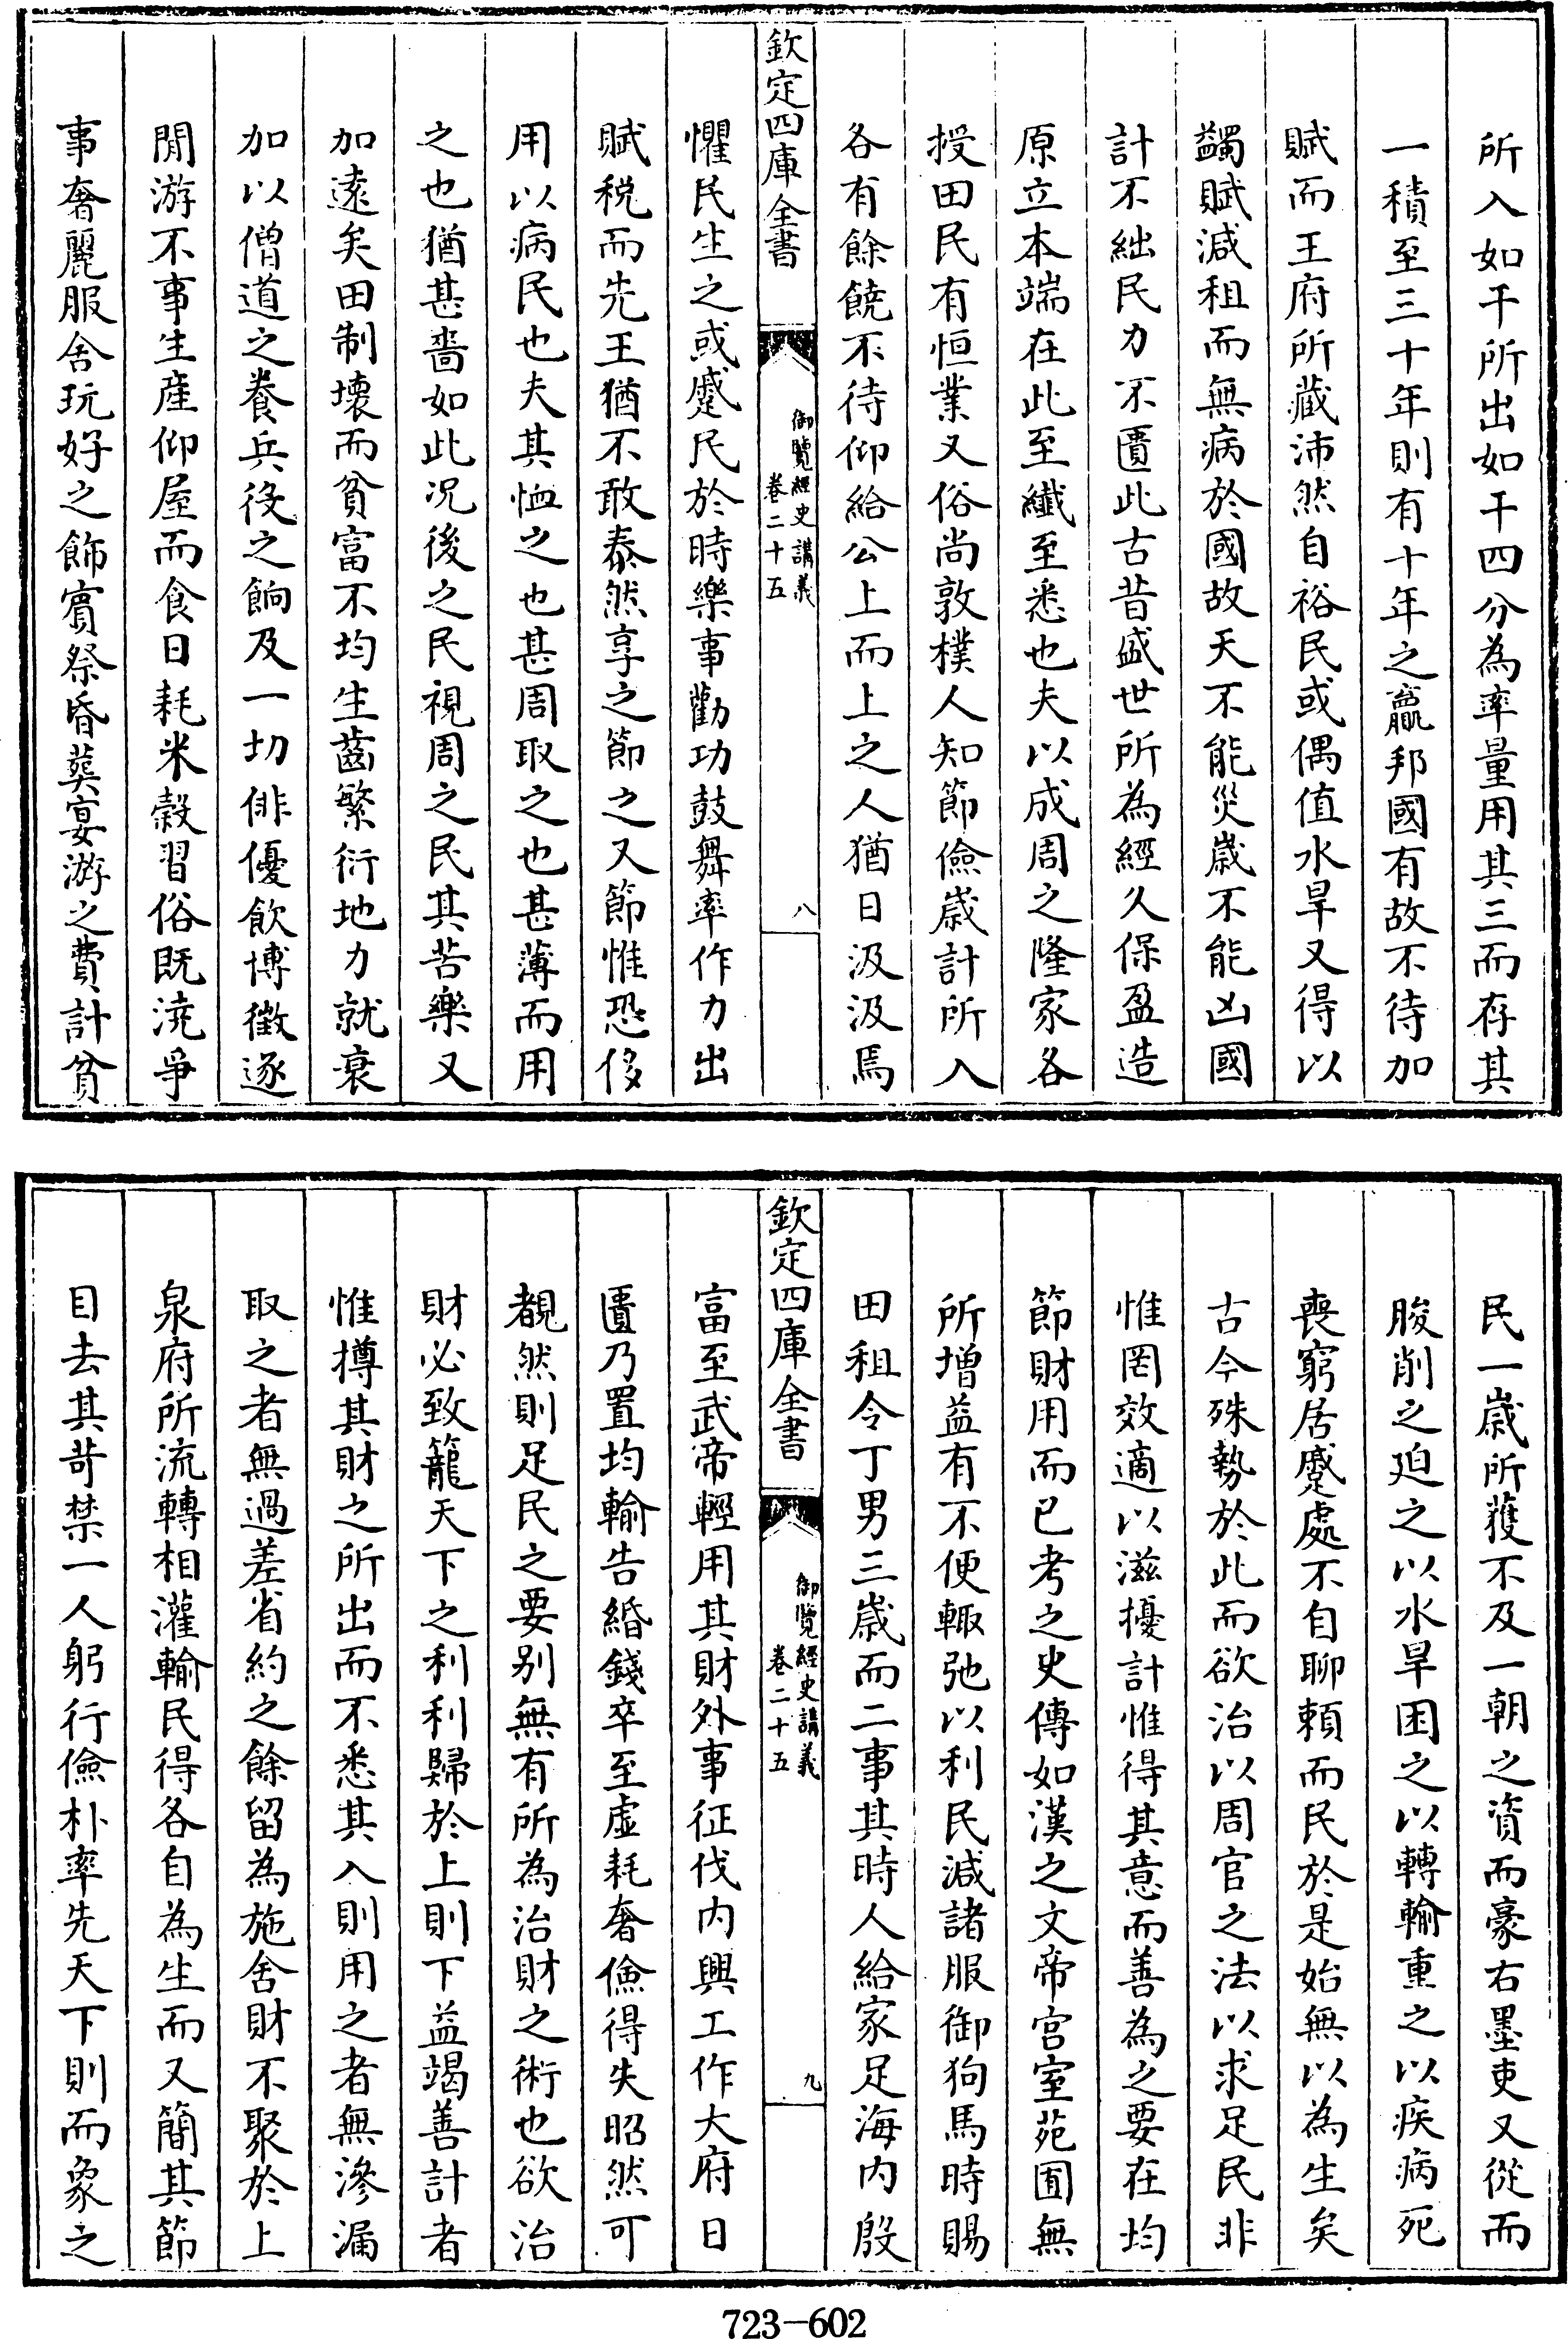 所入如干所出如干四分為率量用其三而存其
一積至三十年則有十年之贏邦國有故不待加
賦而王府所藏沛然自裕民或偶值水旱又得以
蠲賦減租而無病於國故天不能災歲不能凶國
計不絀民力不匱此古昔盛世所為經久保盈造
原立本端在此至纖至悉也夫以成周之隆家各
授田民有恒業又俗尚敦樸人知節儉歲計所入
各有餘饒不待仰給公上而上之人猶日汲汲焉
欽定四庫全書
御覽經史講義
卷二十五
八
懼民生之或蹙民於時樂事勸功鼓舞率作力出
賦稅而先王猶不敢泰然享之節之又節惟恐侈
用以病民也夫其恤之也甚周取之也甚薄而用
之也猶甚嗇如此况後之民視周之民其苦樂又
加遠矣田制壞而貧富不均生齒繁衍地力就衰
加以僧道之養兵役之餉及一切俳優飲博徵逐
閒游不事生產仰屋而食日耗米穀習俗既澆爭
事奢麗服舍玩好之飾賓祭昏葬宴游之費計貧
民一歲所獲不及一朝之資而豪右墨吏又從而
朘削之廹之以水旱困之以轉輸重之以疾病死
喪窮居蹙處不自聊賴而民於是始無以為生矣
古今殊勢於此而欲治以周官之法以求足民非
惟罔效適以滋擾計惟得其意而善為之要在均
節財用而已考之史傳如漢之文帝宫室苑囿無
所增益有不便輙弛以利民減諸服御狗馬時賜
田租令丁男三歲而二事其時人給家足海内殷
欽定四庫全書
御覽經史講義
卷二十五
九
富至武帝輕用其財外事征伐内興工作大府日
匱乃置均輸告緡錢卒至虛耗奢儉得失昭然可
覩然則足民之要别無有所為治財之術也欲治
財必致籠天下之利利歸於上則下益竭善計者
惟撙其財之所出而不悉其入則用之者無滲漏
取之者無過差省約之餘留為施舍財不聚於上
泉府所流轉相灌輸民得各自為生而又簡其節
目去其苛禁一人躬行儉朴率先天下則而象之
723-602